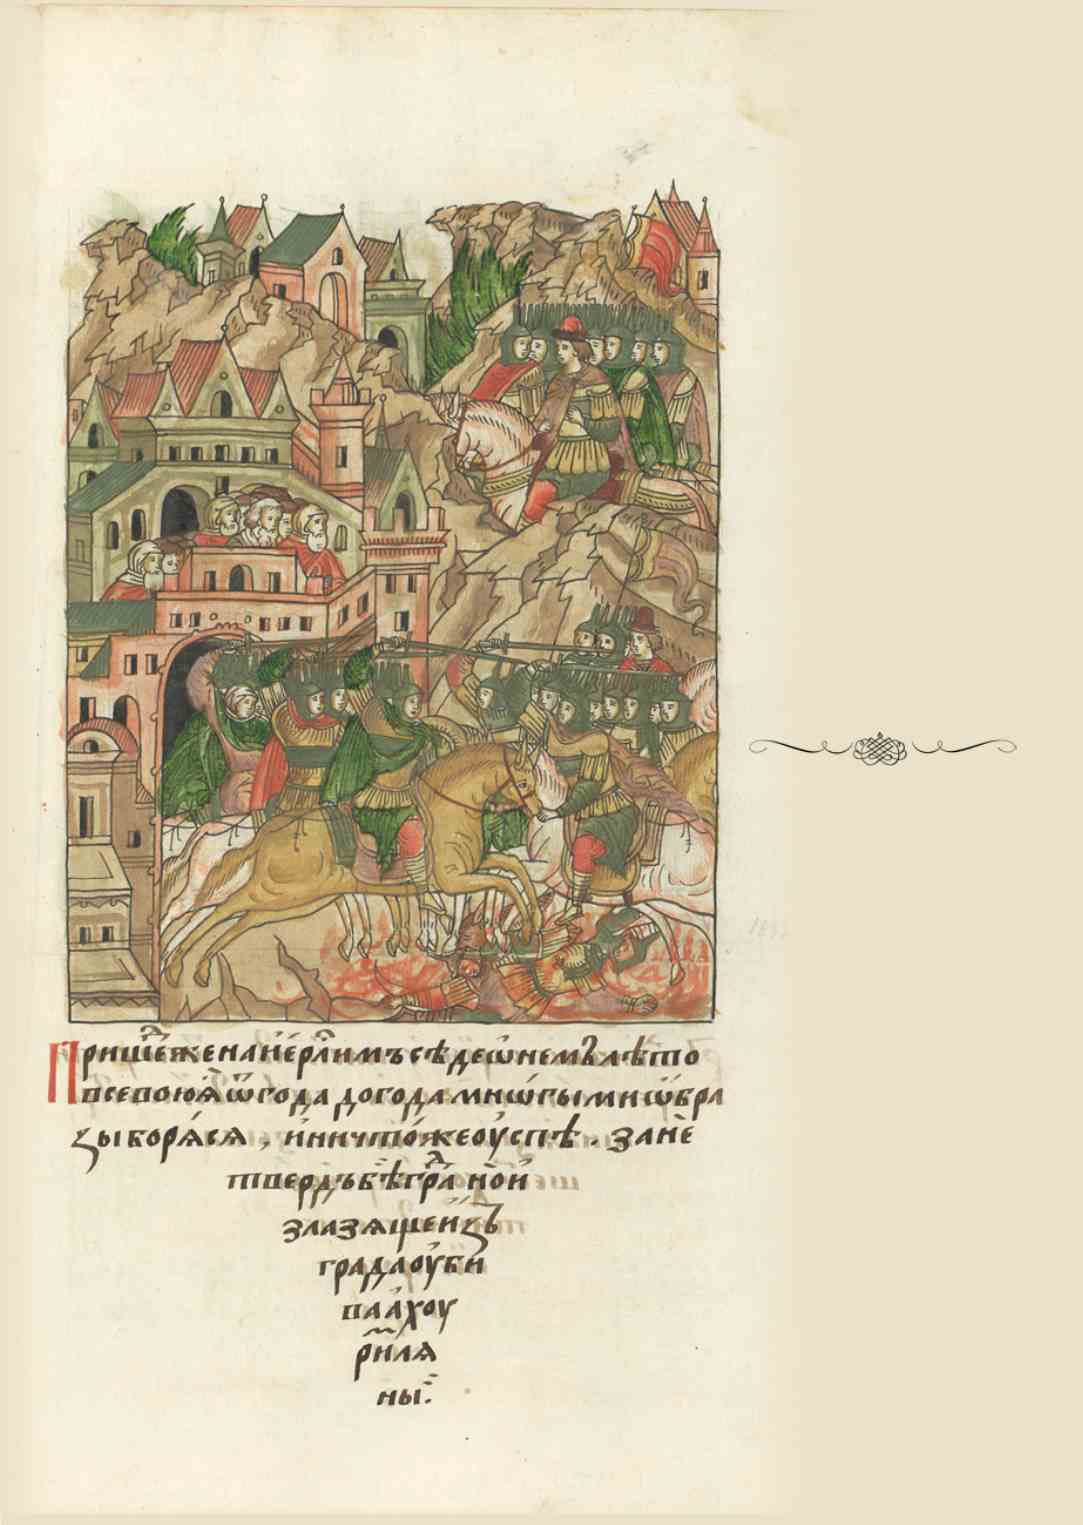 Пришеⷣже на иерⷭ҇лимъ седе ѡ немъ лѣто
все воюя ѿ года до года мнѡгыми ѡбра
зы боряся, и ничтоже оуспѣ. зане
твердъ бѣ граⷣ но и
злазяще изъ
града оуби
вааху
римля
ны: